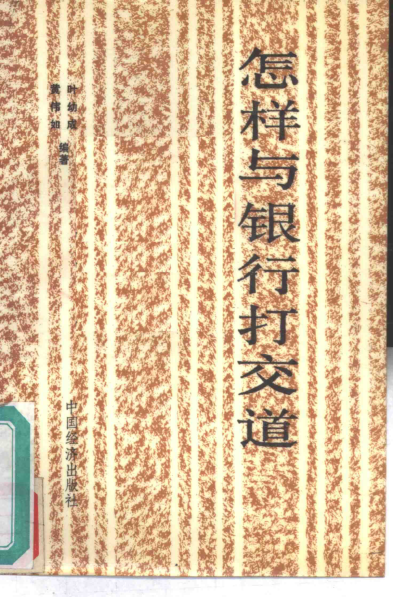 怎样与银行打交道
叶幼成
黄伟如
编著
中国经济出版社